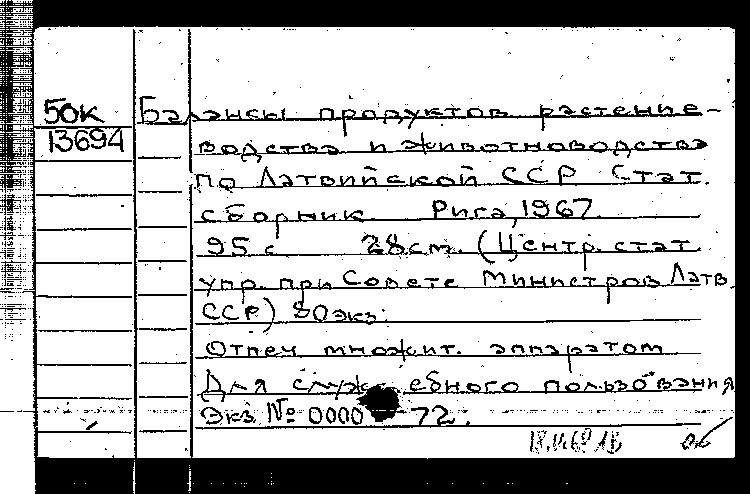 50к Балансы продуктов растение-
13694 водства и животноводства
по Латвийской ССР Стат.
сборник. Рига, 1967.
95 с 28 см. (Центр. стат
упр. при Совете Министров Латв.
ССР) 80 экз.
Отпеч множит. аппаратом
Для служебного пользования
Экз № 0000 72.